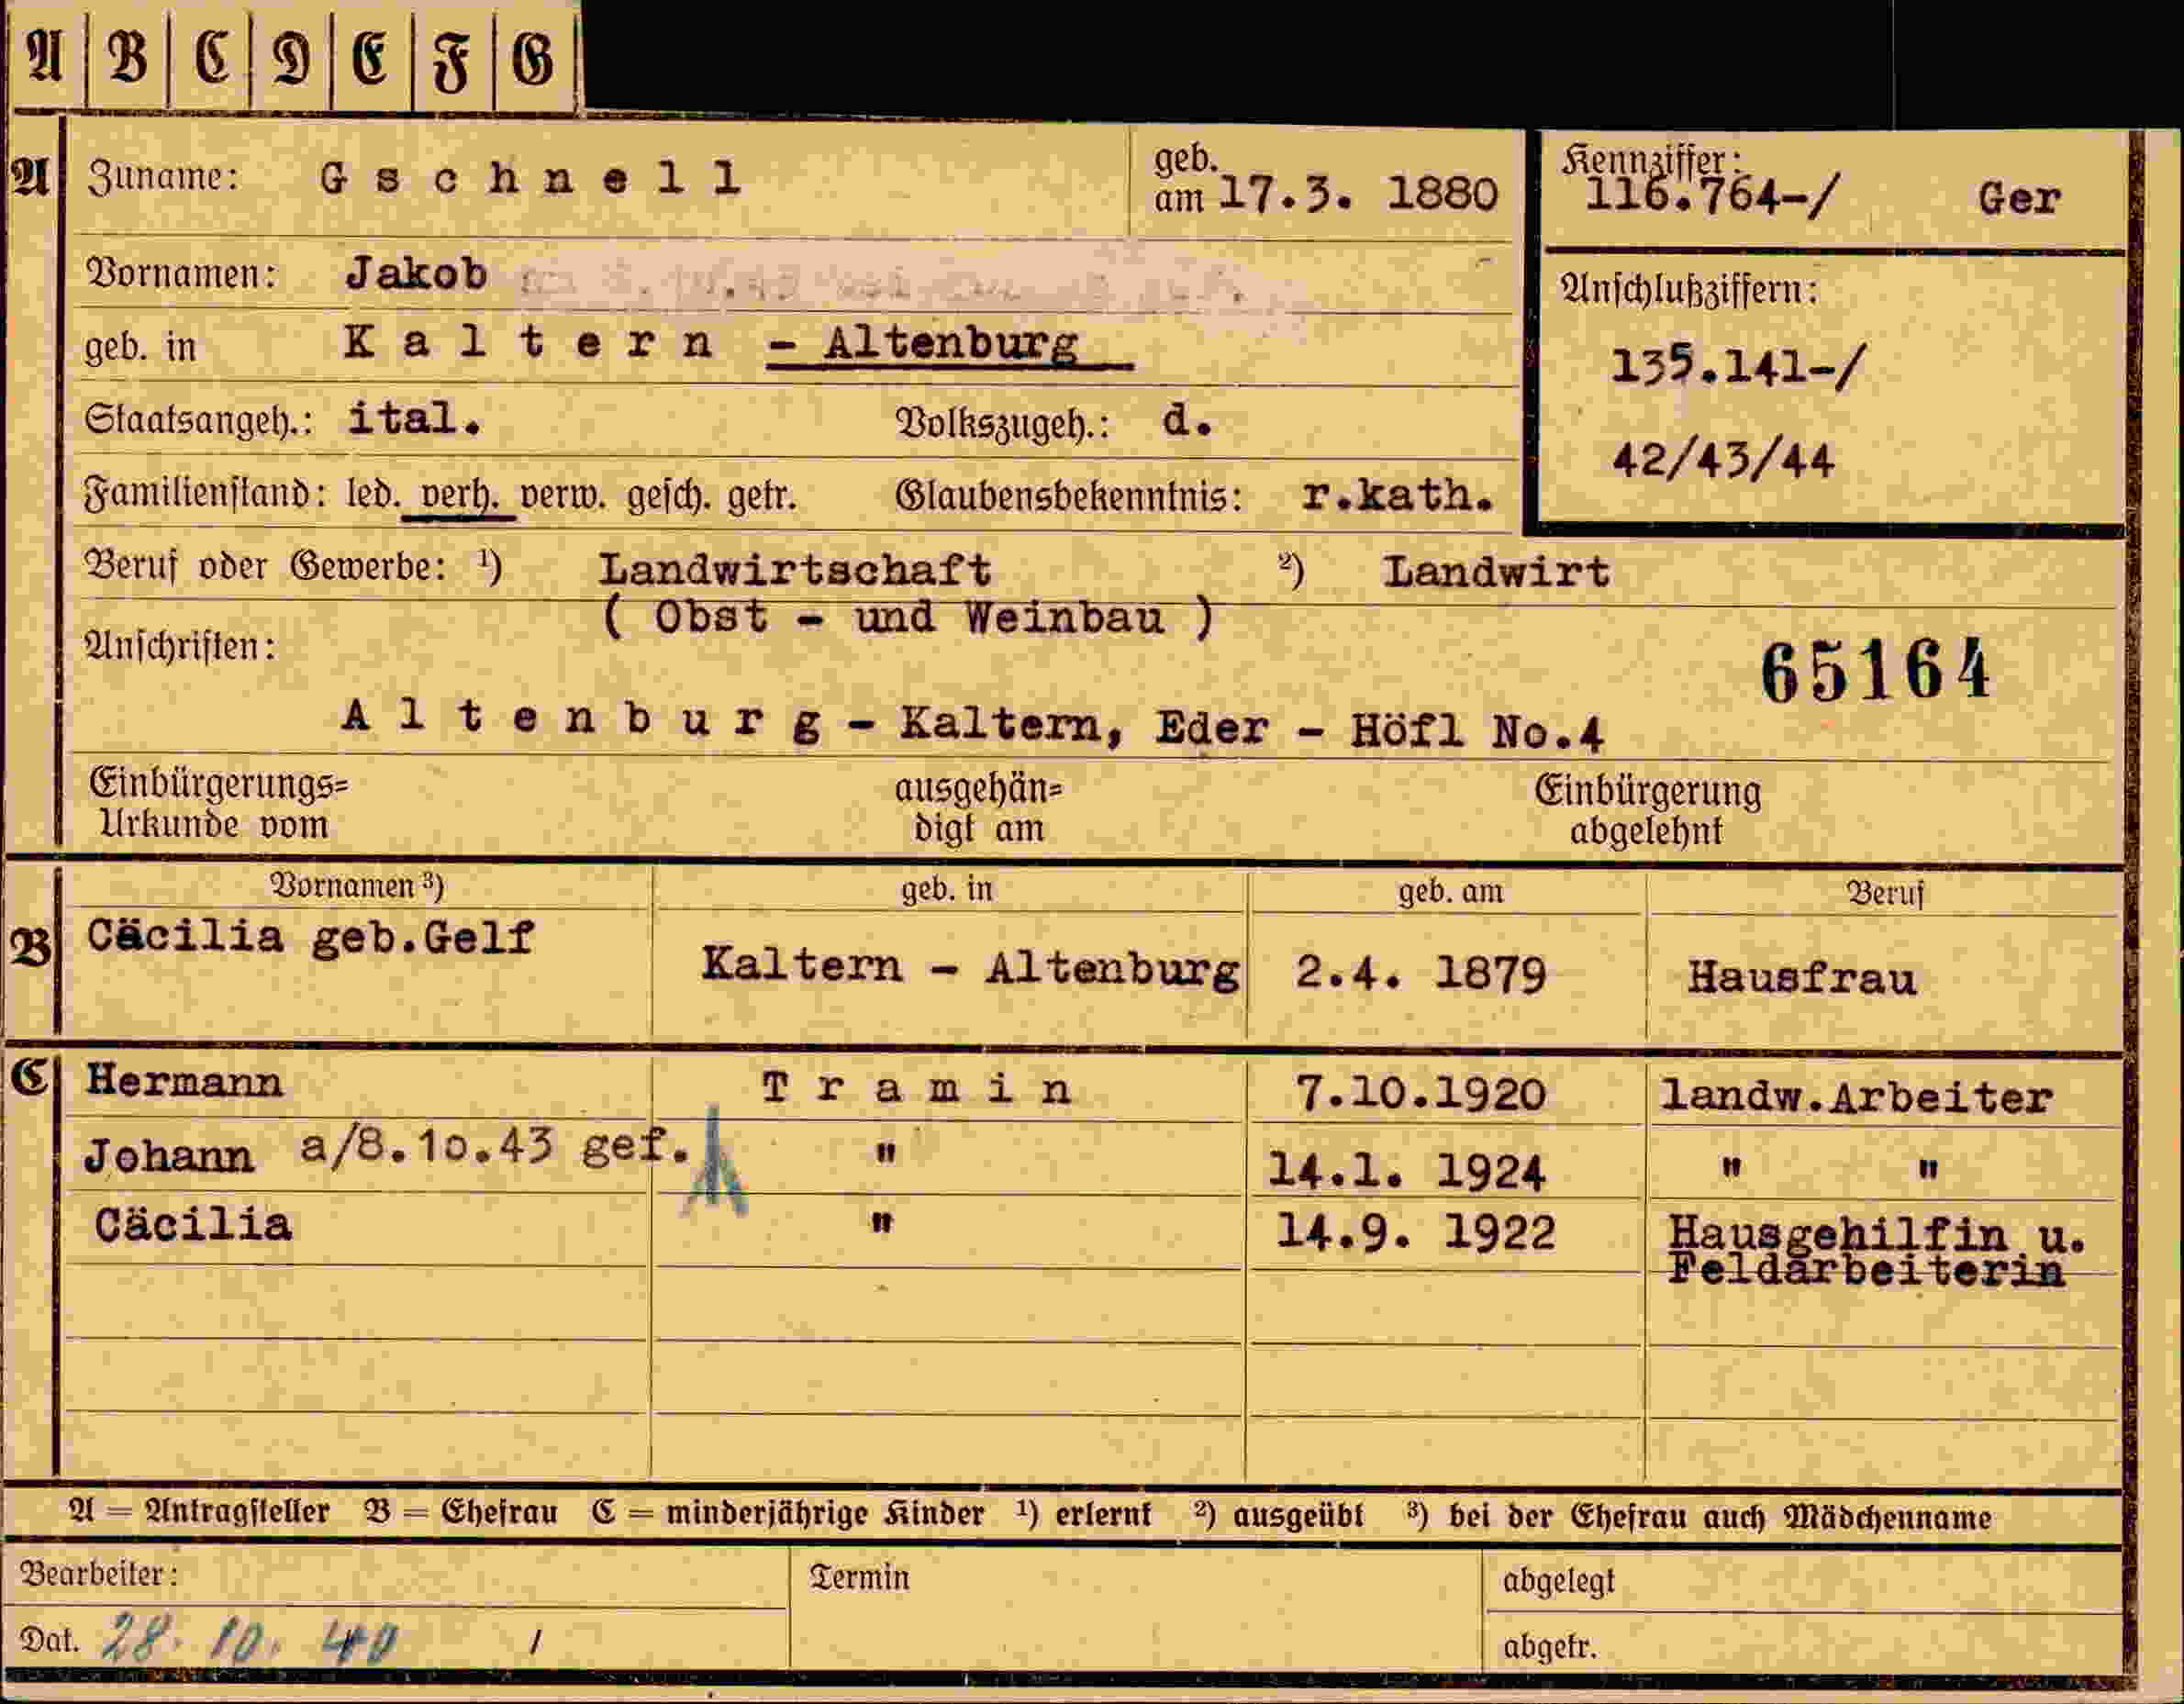 A B C D E F G
A Zuname: Gschnell geb. am 17.3. 1880 Kennziffer: 116.764-/ Ger
Vornamen: Jakob
Anschlußziffern:
geb. in Kaltern - Altenburg
135.141-/
Staatsangeh.: ital. Volkszugeh.: d.
42/43/44
Familienstand: led. verh. verw. gesch. getr. Glaubensbekenntnis: r.kath.
Beruf oder Gewerbe: ¹) Landwirtschaft ²) Landwirt
( Obst - und Weinbau )
Anschriften:
65164
Altenburg - Kaltern, Eder - Höfl No.4
Einbürgerungs= ausgehän= Einbürgerung
Urkunde vom digt am abgelehnt
Vornamen ³) geb. in geb. am Beruf
B Cäcilia geb.Gelf Kaltern - Altenburg 2.4. 1879 Hausfrau
C Hermann Tramin 7.10.1920 landw.Arbeiter
Johann a/8.10.43 gef. " 14.1. 1924 " "
Cäcilia " 14.9. 1922 Hausgehilfin u.
Feldarbeiterin
A = Antragsteller B = Ehefrau C = minderjährige Kinder ¹) erlernt ²) ausgeübt ³) bei der Ehefrau auch Mädchenname
Bearbeiter: Termin abgelegt
Dat. 28. 10. 40 / abgetr.